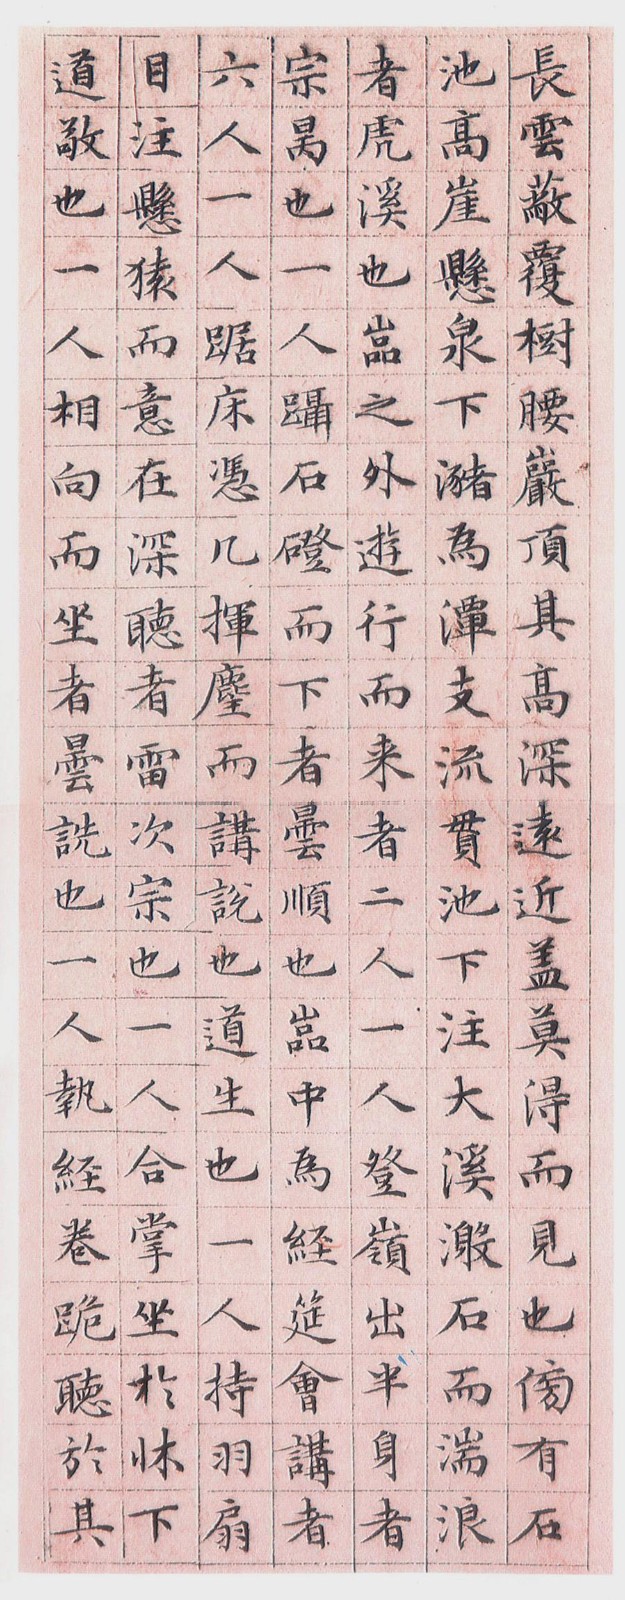 長雲蔽覆樹腰巖頂其高深遠近盖莫得而見也傍有石
池高崖懸泉下瀦為潭支流貫池下注大溪激石而湍浪
者虎溪也嵒之外遊行而来者二人一人登嶺出半身者
宗昺也一人躡石磴而下者曇順也嵒中為経筵會講者
六人一人踞床憑几揮麈而講說也道生也一人持羽扇
目注懸猿而意在深聽者雷次宗也一人合掌坐於牀下
道敬也一人相向而坐者曇詵也一人執経巻跪聽於其